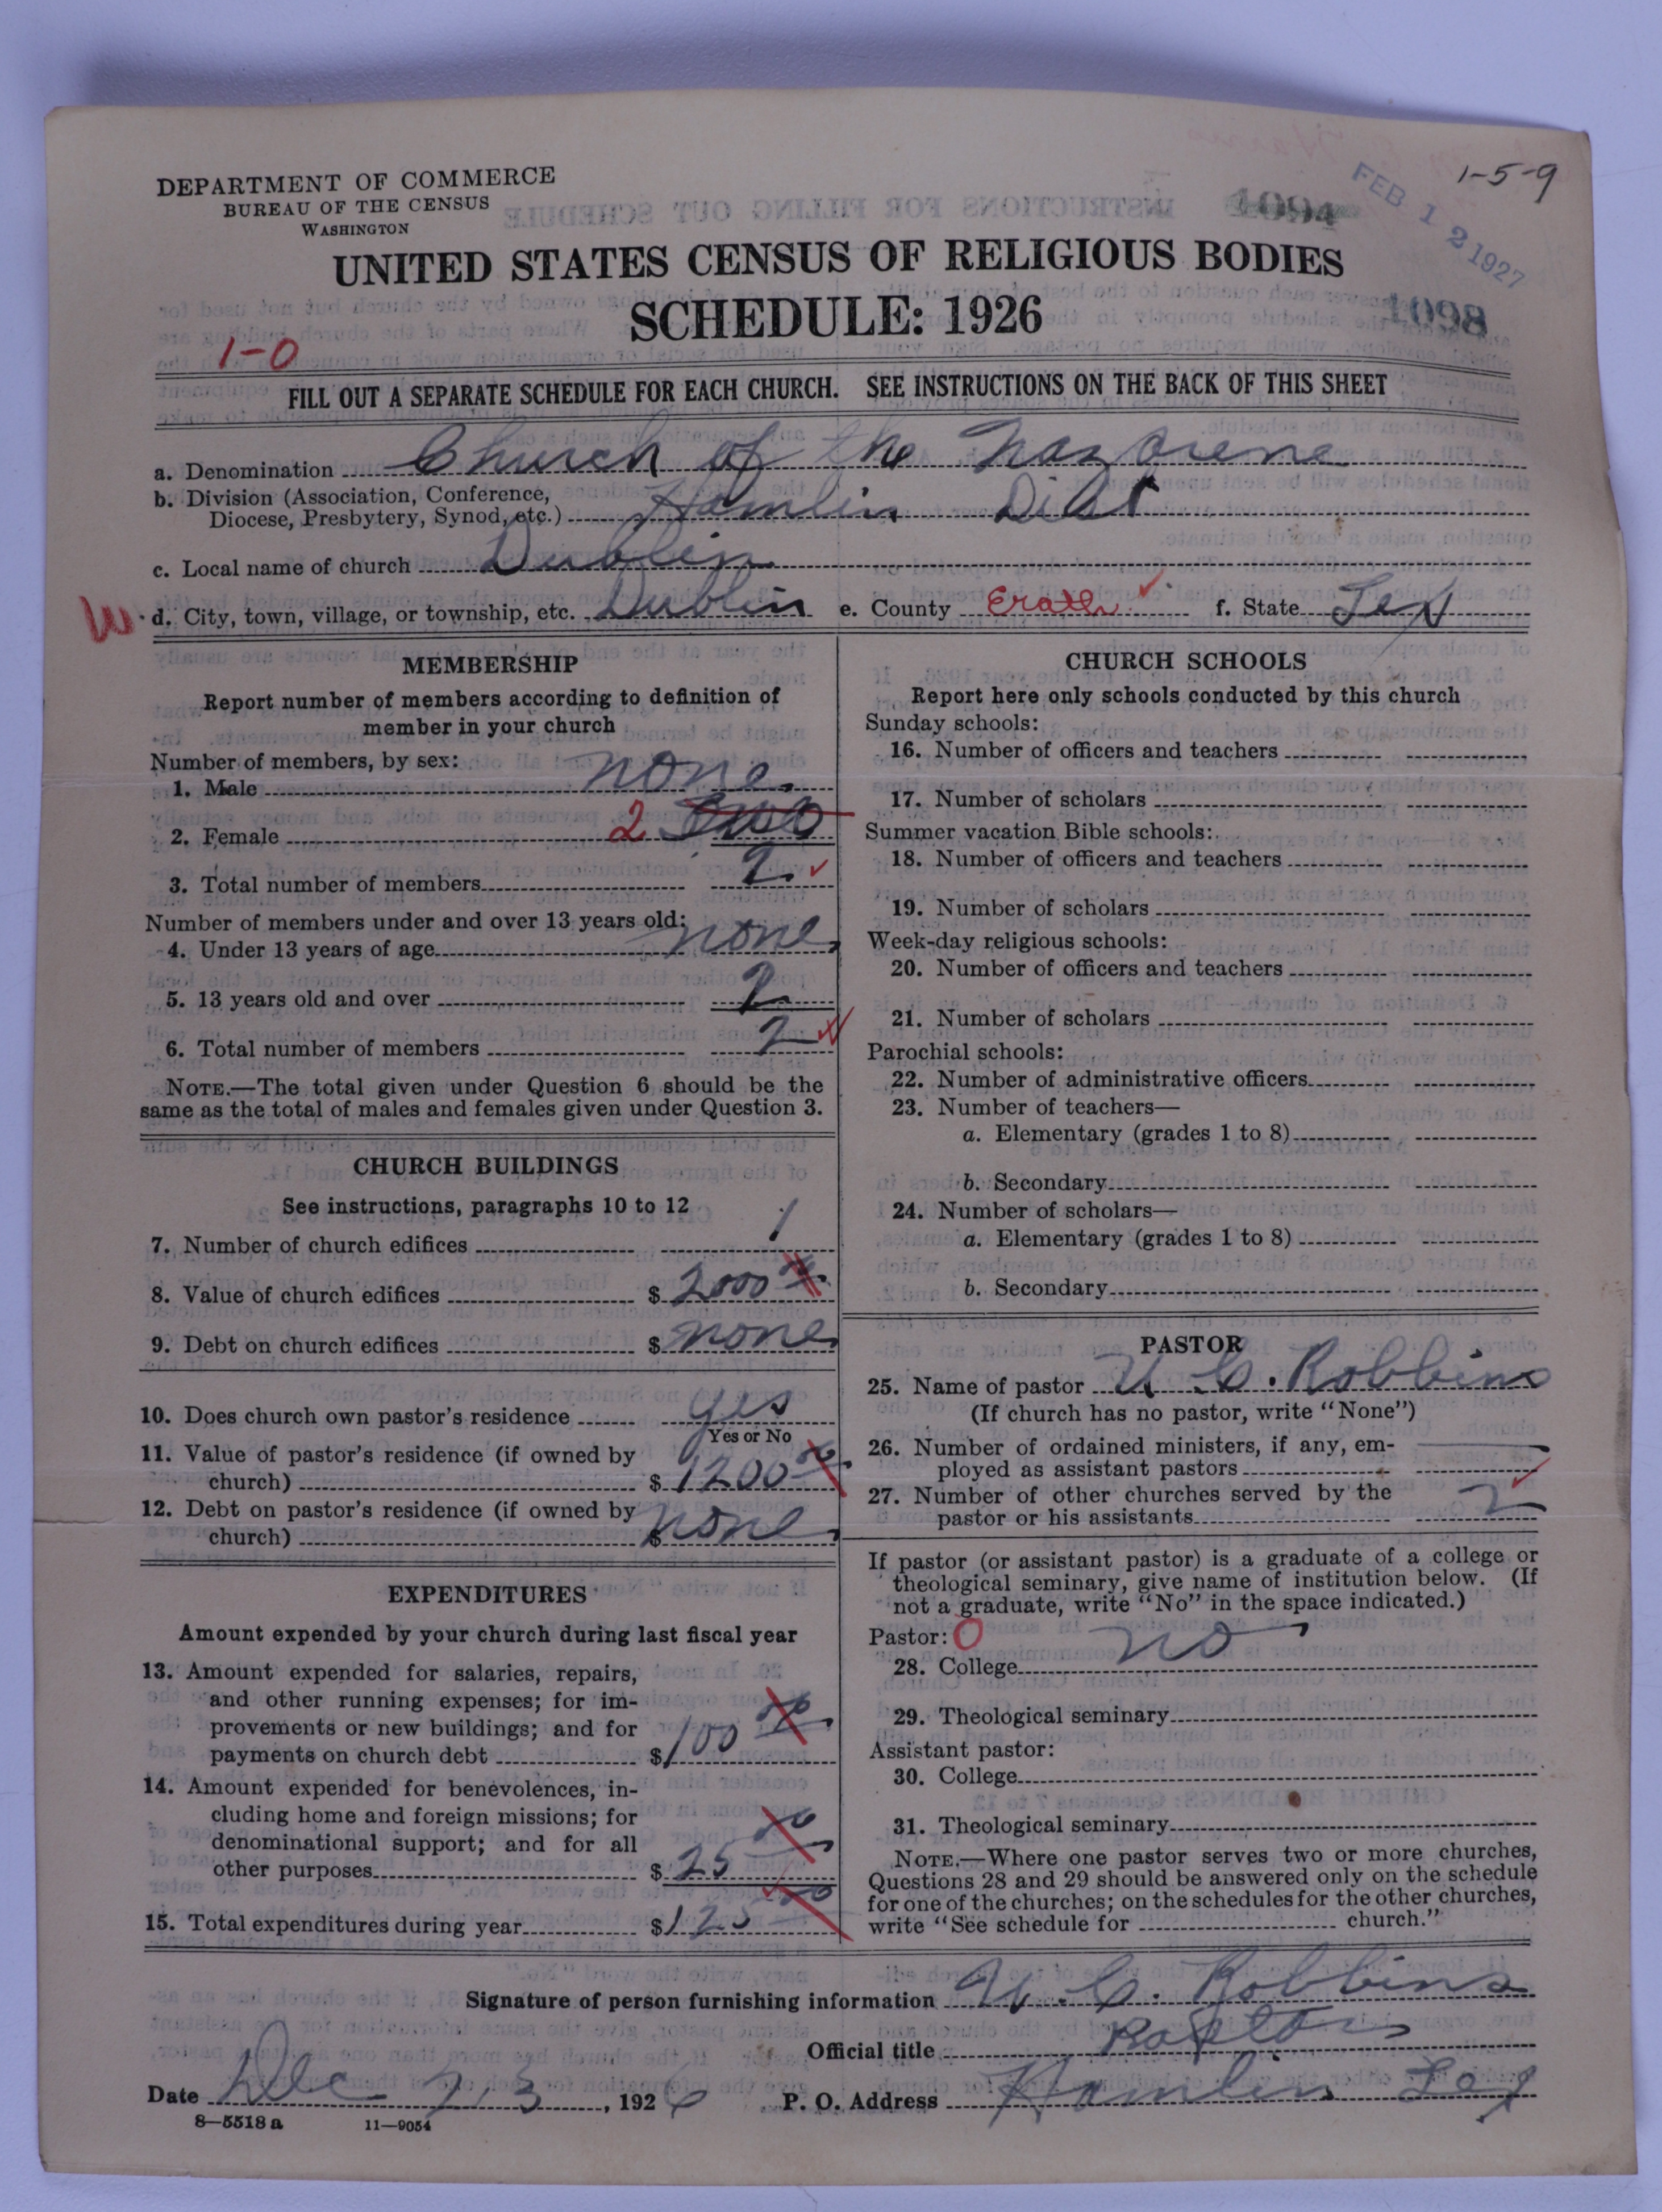 1-5-9
DEPARTMENT OF COMMERCE
BUREAU OF THE CENSUS
WASHINGTON
1094
FEB 12 1927
UNITED STATES CENSUS OF RELIGIOUS BODIES
SCHEDULE: 1926
1098
1-0
FILL OUT A SEPARATE SCHEDULE FOR EACH CHURCH. SEE INSTRUCTIONS ON THE BACK OF THIS SHEET
a. Denomination Church of the Nazarene
b. Division (Association, Conference,
Diocese, Presbytery, Synod, etc.) Hamlin Dist
c. Local name of church Dublin
d. City, town, village, or township, etc. Dublin e. County Erath f. State Tex
MEMBERSHIP
Report number of members according to definition of
member in your church
Number of members, by sex:
1. Male none
2. Female 2 two
3. Total number of members 2
Number of members under and over 13 years old:
4. Under 13 years of age none
5. 13 years old and over 2
6. Total number of members 2
NOTE.—The total given under Question 6 should be the
same as the total of males and females given under Question 3.
CHURCH BUILDINGS
See instructions, paragraphs 10 to 12
7. Number of church edifices 1
8. Value of church edifices $ 2000 00
9. Debt on church edifices $ none
10. Does church own pastor's residence yes
Yes or No
11. Value of pastor's residence (if owned by
church) $ 1200 00
12. Debt on pastor's residence (if owned by
church) $ none
EXPENDITURES
Amount expended by your church during last fiscal year
13. Amount expended for salaries, repairs,
and other running expenses; for im-
provements or new buildings; and for
payments on church debt $ 100 00
14. Amount expended for benevolences, in-
cluding home and foreign missions; for
denominational support; and for all
other purposes $ 25 00
15. Total expenditures during year $ 125 00
CHURCH SCHOOLS
Report here only schools conducted by this church
Sunday schools:
16. Number of officers and teachers
17. Number of scholars
Summer vacation Bible schools:
18. Number of officers and teachers
19. Number of scholars
Week-day religious schools:
20. Number of officers and teachers
21. Number of scholars
Parochial schools:
22. Number of administrative officers
23. Number of teachers—
a. Elementary (grades 1 to 8)
b. Secondary
24. Number of scholars—
a. Elementary (grades 1 to 8)
b. Secondary
PASTOR
25. Name of pastor U. C. Robbins
(If church has no pastor, write "None")
26. Number of ordained ministers, if any, em-
ployed as assistant pastors
27. Number of other churches served by the
pastor or his assistants 2
If pastor (or assistant pastor) is a graduate of a college or
theological seminary, give name of institution below. (If
not a graduate, write "No" in the space indicated.)
Pastor: 0
28. College no
29. Theological seminary
Assistant pastor:
30. College
31. Theological seminary
NOTE.—Where one pastor serves two or more churches,
Questions 28 and 29 should be answered only on the schedule
for one of the churches; on the schedules for the other churches,
write "See schedule for church."
Signature of person furnishing information U. C. Robbins
Official title Pastor
Date Dec 23, 1926 P. O. Address Hamlin Tex
8—5518 a 11—9054